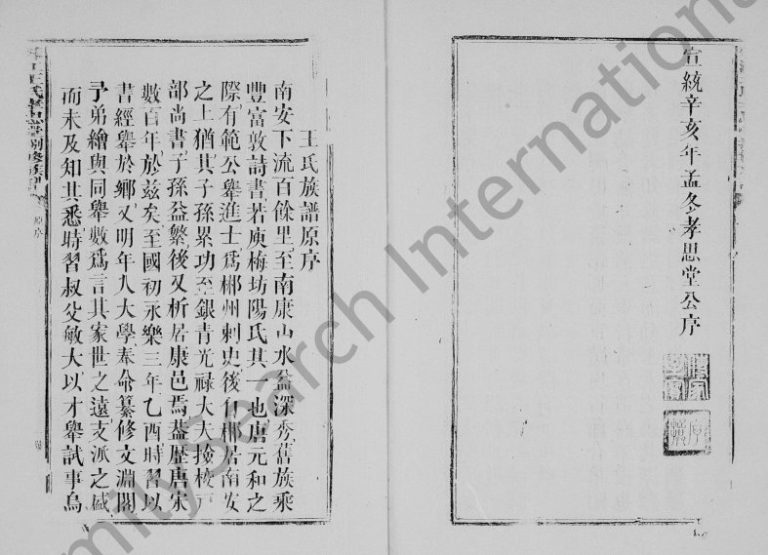 宣統辛亥年孟冬孝思堂公序
王氏族譜原序
南安下流百餘里至南康山水益深秀舊族乘
豐富敦詩書若庾梅坊陽氏其一也唐元和之
際有範公舉進士爲郴州刺史後自郴居南安
之上猶其子孫累功至銀青光祿大夫檢校
部尚書子孫益繁後又析居康邑焉葢歷唐宋
數百年於玆矣至國初永樂三年乙酉時習以
書經舉於鄉又明年入大學奉命纂修文淵閣
予弟繪與同舉數爲言其家世之遠支派之盛
而未及知其悉時習叔父敏大以才舉試事烏
原序
FamilySearch International